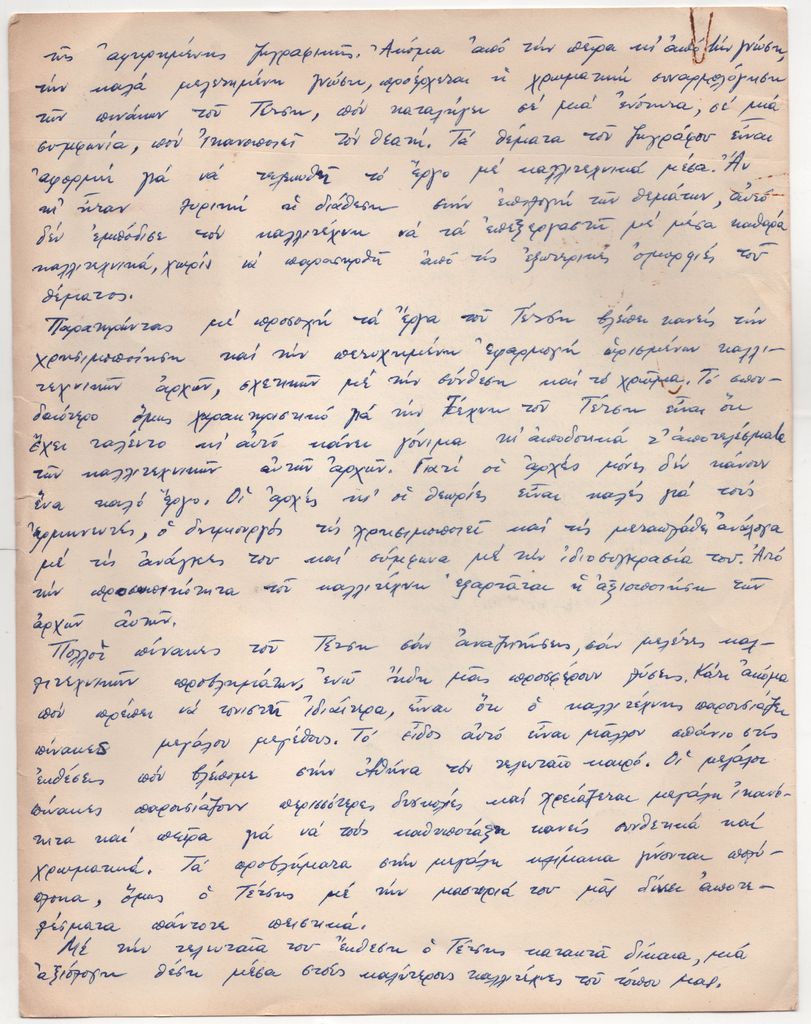 τῆς ἀφηρημένης ζωγραφικῆς. Ἀκόμα ἀπό τήν πεῖρα κι' ἀπό τήν γνώση,
τήν καλά μελετημένη γνώση, προέρχεται ἡ χρωματική συναρμολόγηση
τῶν πινάκων τοῦ Τέτση, πού καταλήγει σέ μιά ἑνότητα, σέ μιά
συμφωνία, πού ἱκανοποιεῖ τόν θεατή. Τά θέματα τοῦ ζωγράφου εἶναι
ἀφορμή γιά νά τελειωθῆ τό ἔργο μέ καλλιτεχνικά μέσα. Ἄν
κι' ἦταν λυρική ἡ διάθεση στήν ἐπιλογή τῶν θεμάτων, αὐτό
δέν ἐμπόδισε τόν καλλιτέχνη νά τά ἐπεξεργαστῆ μέ μέσα καθαρά
καλλιτεχνικά, χωρίς νά παρασυρθῆ ἀπό τίς ἐξωτερικές ὀμορφιές τοῦ
θέματος.
Παρατηρώντας μέ προσοχή τά ἔργα τοῦ Τέτση βλέπει κανείς τήν
χρησιμοποίηση καί τήν πετυχημένη ἐφαρμογή ὁρισμένων καλλι-
τεχνικῶν ἀρχῶν, σχετικῶν μέ τήν σύνθεση καί τό χρῶμα. Τό σπου-
δαιότερο ὅμως χαρακτηριστικό γιά τήν τέχνη τοῦ Τέτση εἶναι ὅτι
ἔχει ταλέντο κι' αὐτό κάνει γόνιμα κι' ἀποδοτικά τ' ἀποτελέσματα
τῶν καλλιτεχνικῶν αὐτῶν ἀρχῶν. Γιατί οἱ ἀρχές μόνες δέν κάνουν
ἕνα καλό ἔργο. Οἱ ἀρχές κι' οἱ θεωρίες εἶναι καλές γιά τούς
ἑρμηνευτές, ὁ δημιουργός τίς χρησιμοποιεῖ καί τίς μεταπλάθει ἀνάλογα
μέ τίς ἀνάγκες του καί σύμφωνα μέ τήν ἰδιοσυγκρασία του. Ἀπό
τήν προσωπικότητα τοῦ καλλιτέχνη ἐξαρτᾶται ἡ ἀξιοποίηση τῶν
ἀρχῶν αὐτῶν.
Πολλοί πίνακες τοῦ Τέτση σάν ἀναζητήσεις, σάν μελέτες καλ-
λιτεχνικῶν προβλημάτων, ἐνῶ ἤδη μᾶς προσφέρουν λύσεις. Κάτι ἀκόμα
πού πρέπει νά τονιστῆ ἰδιαίτερα, εἶναι ὅτι ὁ καλλιτέχνης παρουσιάζει
πίνακες μεγάλου μεγέθους. Τό εἶδος αὐτό εἶναι μᾶλλον σπάνιο στίς
ἐκθέσεις πού βλέπομε στήν Ἀθήνα τόν τελευταῖο καιρό. Οἱ μεγάλοι
πίνακες παρουσιάζουν περισσότερες δυσκολίες καί χρειάζεται μεγάλη ἱκανό-
τητα καί πεῖρα γιά νά τούς καθυποτάξη κανείς συνθετικά καί
χρωματικά. Τά προβλήματα στήν μεγάλη κλίμακα γίνονται πολύ-
πλοκα, ὅμως ὁ Τέτσης μέ τήν μαστοριά του μᾶς δίνει ἀποτε-
λέσματα πάντοτε πειστικά.
Μέ τήν τελευταία του ἔκθεση ὁ Τέτσης κατακτᾶ δίκαια, μιά
ἀξιόλογη θέση μέσα στούς καλύτερους καλλιτέχνες τοῦ τόπου μας.